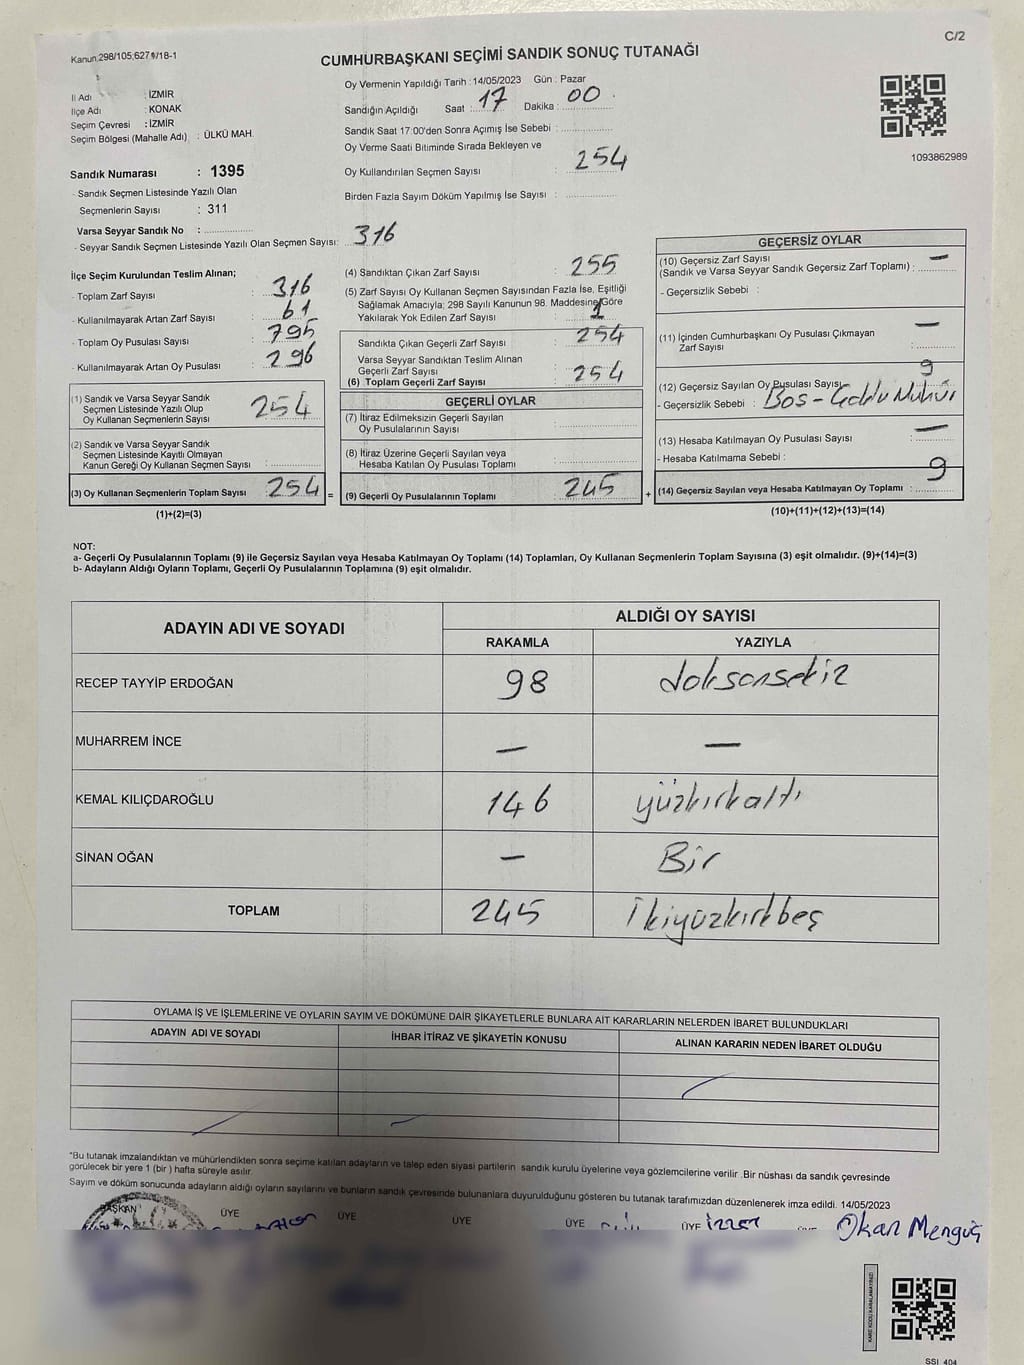 C/2
Kanun:298/105;627ş/18-1
CUMHURBAŞKANI SEÇİMİ SANDIK SONUÇ TUTANAĞI
İl Adı : İZMİR
İlçe Adı : KONAK
Seçim Çevresi : İZMİR
Seçim Bölgesi (Mahalle Adı) : ÜLKÜ MAH.
Oy Vermenin Yapıldığı Tarih : 14/05/2023 Gün : Pazar
Sandığın Açıldığı Saat : 17 Dakika : 00
Sandık Saat 17:00'den Sonra Açımış İse Sebebi :
Oy Verme Saati Bitiminde Sırada Bekleyen ve
Oy Kullandırılan Seçmen Sayısı : 254
Birden Fazla Sayım Döküm Yapılmış İse Sayısı :
1093862989
Sandık Numarası : 1395
- Sandık Seçmen Listesinde Yazılı Olan
Seçmenlerin Sayısı : 311
Varsa Seyyar Sandık No :
- Seyyar Sandık Seçmen Listesinde Yazılı Olan Seçmen Sayısı: 316
İlçe Seçim Kurulundan Teslim Alınan;
- Toplam Zarf Sayısı : 316
- Kullanılmayarak Artan Zarf Sayısı : 61
- Toplam Oy Pusulası Sayısı : 795
- Kullanılmayarak Artan Oy Pusulası : 296
(1) Sandık ve Varsa Seyyar Sandık
Seçmen Listesinde Yazılı Olup
Oy Kullanan Seçmenlerin Sayısı : 254
(2) Sandık ve Varsa Seyyar Sandık
Seçmen Listesinde Kayıtlı Olmayan
Kanun Gereği Oy Kullanan Seçmen Sayısı :
(3) Oy Kullanan Seçmenlerin Toplam Sayısı : 254 =
(1)+(2)=(3)
(4) Sandıktan Çıkan Zarf Sayısı : 255
(5) Zarf Sayısı Oy Kullanan Seçmen Sayısından Fazla İse, Eşitliği
Sağlamak Amacıyla; 298 Sayılı Kanunun 98. Maddesine Göre
Yakılarak Yok Edilen Zarf Sayısı : 1
Sandıkta Çıkan Geçerli Zarf Sayısı : 254
Varsa Seyyar Sandıktan Teslim Alınan
Geçerli Zarf Sayısı
(6) Toplam Geçerli Zarf Sayısı : 254
GEÇERLİ OYLAR
(7) İtiraz Edilmeksizin Geçerli Sayılan
Oy Pusulalarının Sayısı :
(8) İtiraz Üzerine Geçerli Sayılan veya
Hesaba Katılan Oy Pusulası Toplamı :
(9) Geçerli Oy Pusulalarının Toplamı : 245 +
GEÇERSİZ OYLAR
(10) Geçersiz Zarf Sayısı —
(Sandık ve Varsa Seyyar Sandık Geçersiz Zarf Toplamı) :
- Geçersizlik Sebebi :
(11) İçinden Cumhurbaşkanı Oy Pusulası Çıkmayan —
Zarf Sayısı :
(12) Geçersiz Sayılan Oy Pusulası Sayısı : 9
- Geçersizlik Sebebi : Bos -
(13) Hesaba Katılmayan Oy Pusulası Sayısı : —
- Hesaba Katılmama Sebebi :
(14) Geçersiz Sayılan veya Hesaba Katılmayan Oy Toplamı : 9
(10)+(11)+(12)+(13)=(14)
NOT:
a- Geçerli Oy Pusulalarının Toplamı (9) ile Geçersiz Sayılan veya Hesaba Katılmayan Oy Toplamı (14) Toplamları, Oy Kullanan Seçmenlerin Toplam Sayısına (3) eşit olmalıdır. (9)+(14)=(3)
b- Adayların Aldığı Oyların Toplamı, Geçerli Oy Pusulalarının Toplamına (9) eşit olmalıdır.
ADAYIN ADI VE SOYADI ALDIĞI OY SAYISI
RAKAMLA YAZIYLA
RECEP TAYYİP ERDOĞAN 98 doksansekiz
MUHARREM İNCE — —
KEMAL KILIÇDAROĞLU 146 yüzkırkaltı
SİNAN OĞAN — Bir
TOPLAM 245 İkiyüzkırkbeş
OYLAMA İŞ VE İŞLEMLERİNE VE OYLARIN SAYIM VE DÖKÜMÜNE DAİR ŞİKAYETLERLE BUNLARA AİT KARARLARIN NELERDEN İBARET BULUNDUKLARI
ADAYIN ADI VE SOYADI İHBAR İTİRAZ VE ŞİKAYETİN KONUSU ALINAN KARARIN NEDEN İBARET OLDUĞU
*Bu tutanak imzalandıktan ve mühürlendikten sonra seçime katılan adayların ve talep eden siyasi partilerin sandık kurulu üyelerine veya gözlemcilerine verilir .Bir nüshası da sandık çevresinde
görülecek bir yere 1 (bir ) hafta süreyle asılır.
Sayım ve döküm sonucunda adayların aldığı oyların sayılarını ve bunların sandık çevresinde bulunanlara duyurulduğunu gösteren bu tutanak tarafımızdan düzenlenerek imza edildi. 14/05/2023
BAŞKAN ÜYE ÜYE ÜYE ÜYE ÜYE İzzet Okan Mengüç
KARE KODU KARALAMAYINIZ!
SSI 404